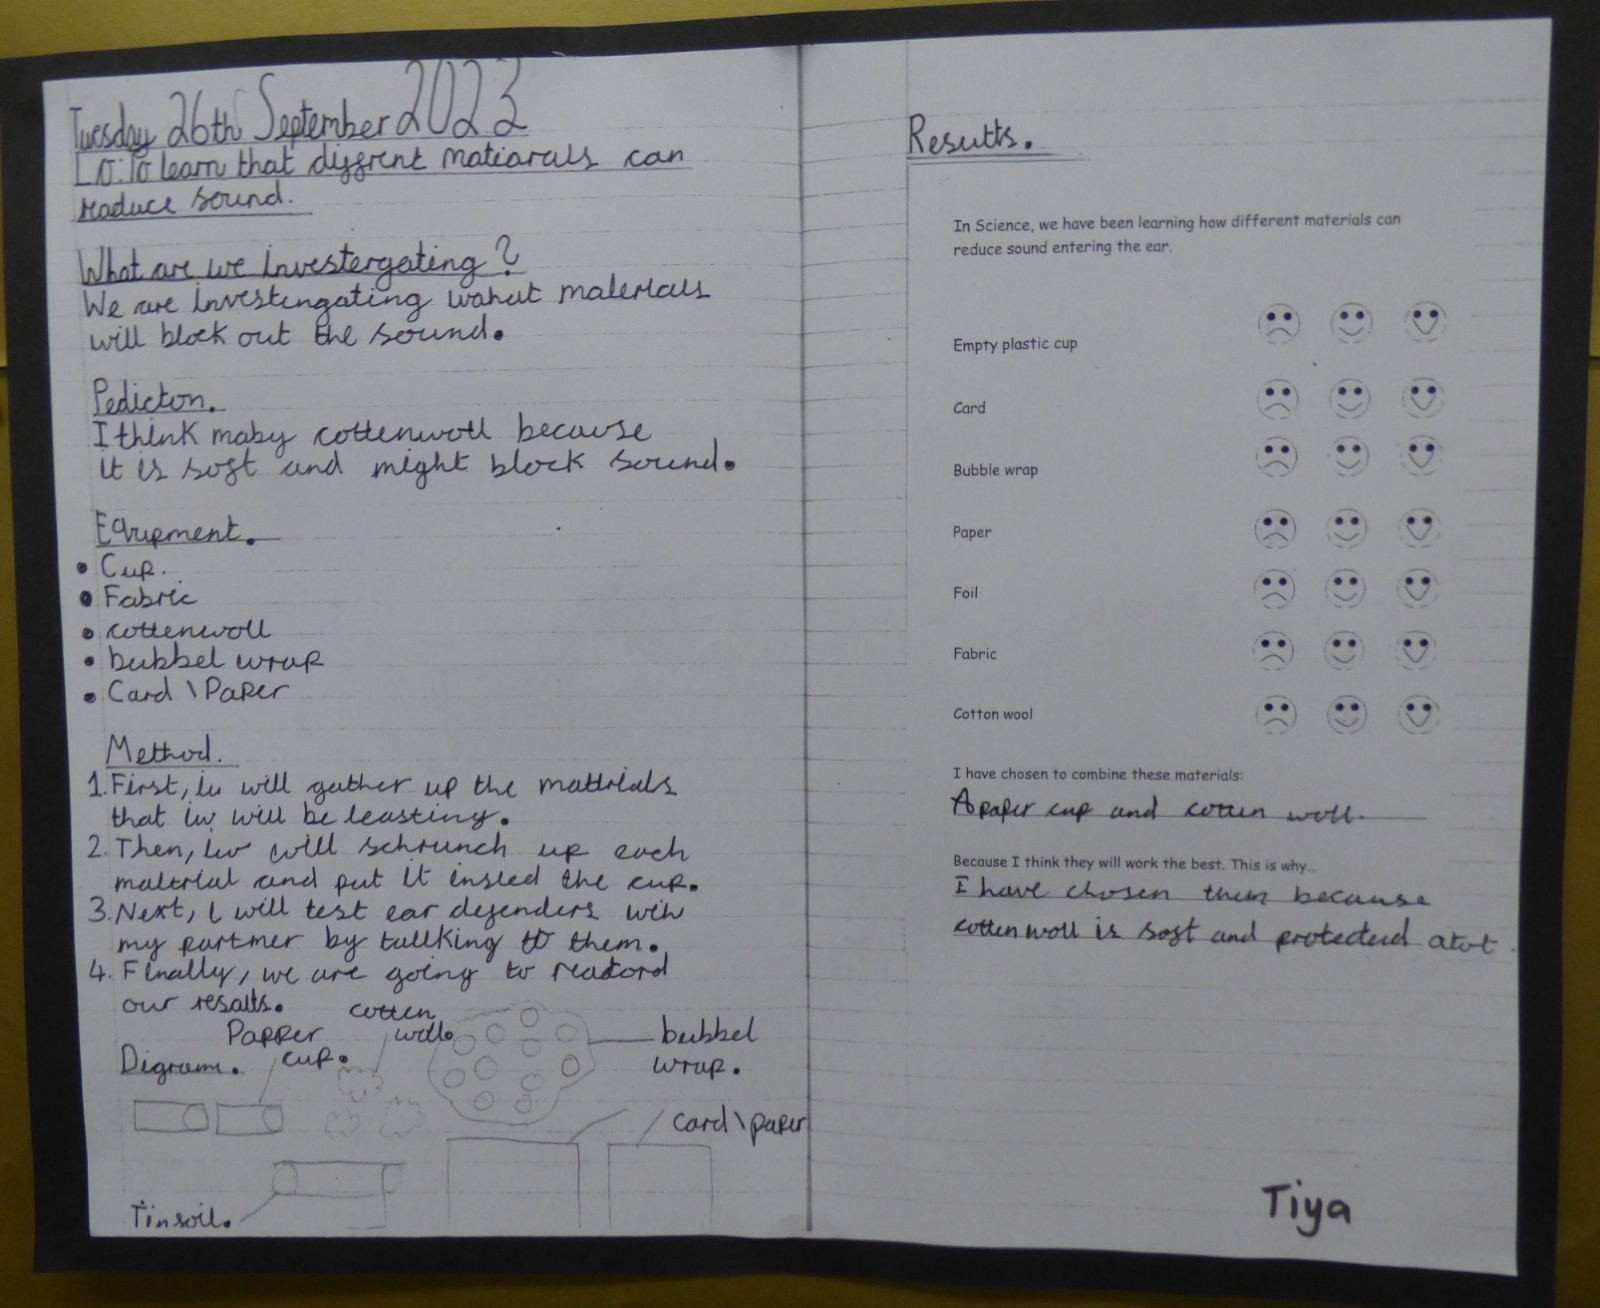 Tuesday 26th September 2023
LO: To learn that diffrent matiarals can
raduce sound.
What are we investergating?
We are investingating wahat materials
will block out the sound.
Pedicton.
I think maby cottenwoll because
it is soft and might block sound.
Equipment.
• Cup.
• Fabric
• cottenwoll
• bubbel wrap
• Card \ Paper
Method.
1. First, iw will gather up the mattrials
that iw will be teasting.
2. Then, iw will schrunch up each
maltrial and put it insied the cup.
3. Next, i will test ear defenders with
my partner by tallking to them.
4. Finally, we are going to reacord
our resalts.
Digram.
Papper
cup.
cotten
woll.
bubbel
wrap.
card \ paper
Tinfoil.
Results.
In Science, we have been learning how different materials can
reduce sound entering the ear.
Empty plastic cup
Card
Bubble wrap
Paper
Foil
Fabric
Cotton wool
I have chosen to combine these materials:
A paper cup and cotten woll.
Because I think they will work the best. This is why...
I have chosen them because
cotten woll is soft and protected alot.
Tiya